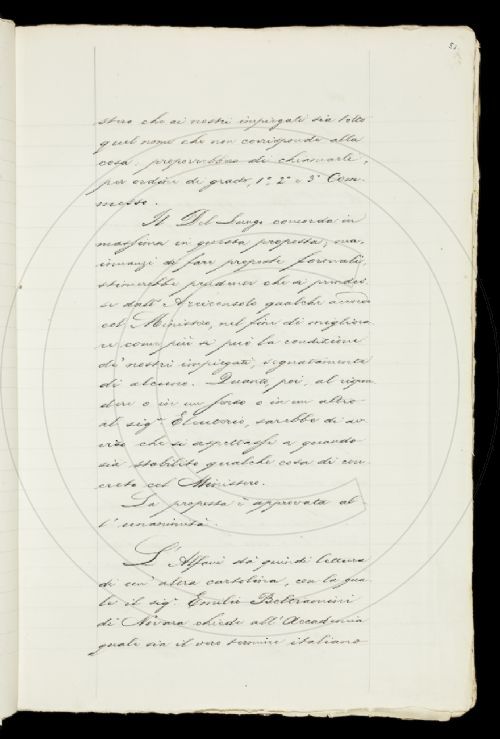 51
stero che ai nostri impiegati sia tolto
quel nome che non corrisponde alla
cosa: proporrebbero di chiamarli,
per ordine di grado, 1º, 2º e 3º Com-
messo.
Il Del Lungo concorda in
massima in questa proposta, ma,
innanzi di fare proposte formali,
stimerebbe prudenza che si prendes-
se dall'Arciconsolo qualche
col Ministero, nel fine di migliora-
re come più si può la condizione
de' nostri impiegati, segnatamente
di alcuno. Quanto poi, al rispon-
dere o in un senso o in un altro
al sig.r sarebbe di av-
viso che si aspettasse a quando
sia stabilito qualche cosa di con-
creto col Ministero.
La proposta è approvata al-
l'unanimità.
L'Alfani dà quindi lettura
di un'altra cartolina, con la qua-
le il sig.r Emilio Beltramini
di Novara chiede all'Accademia
quale sia il vero termine italiano